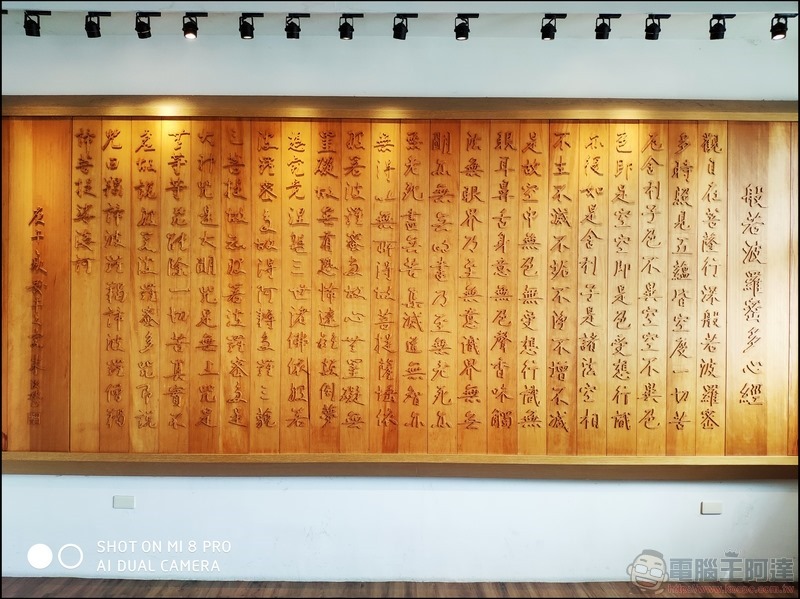 般若波羅密多心經
觀自在菩薩行深般若波羅密
多時照見五蘊皆空度一切苦
厄舍利子色不異空空不異色
色即是空空即是色受想行識
亦復如是舍利子是諸法空相
不生不滅不垢不淨不增不減
是故空中無色無受想行識無
眼耳鼻舌身意無色聲香味觸
法無眼界乃至無意識界無無
明亦無無明盡乃至無老死亦
無老死盡無苦集滅道無智亦
無得以無所得故菩提薩埵依
般若波羅密多故心無罣礙無
罣礙故無有恐怖遠離顛倒夢
想究竟涅槃三世諸佛依般若
波羅密多故得阿耨多羅三藐
三菩提故知般若波羅密多是
大神咒是大明咒是無上咒是
無等等咒能除一切苦真實不
虛故說般若波羅密多咒即說
咒曰揭諦波羅揭諦波羅僧揭
諦菩提娑婆訶
SHOT ON MI 8 PRO
AI DUAL CAMERA
電腦王阿達